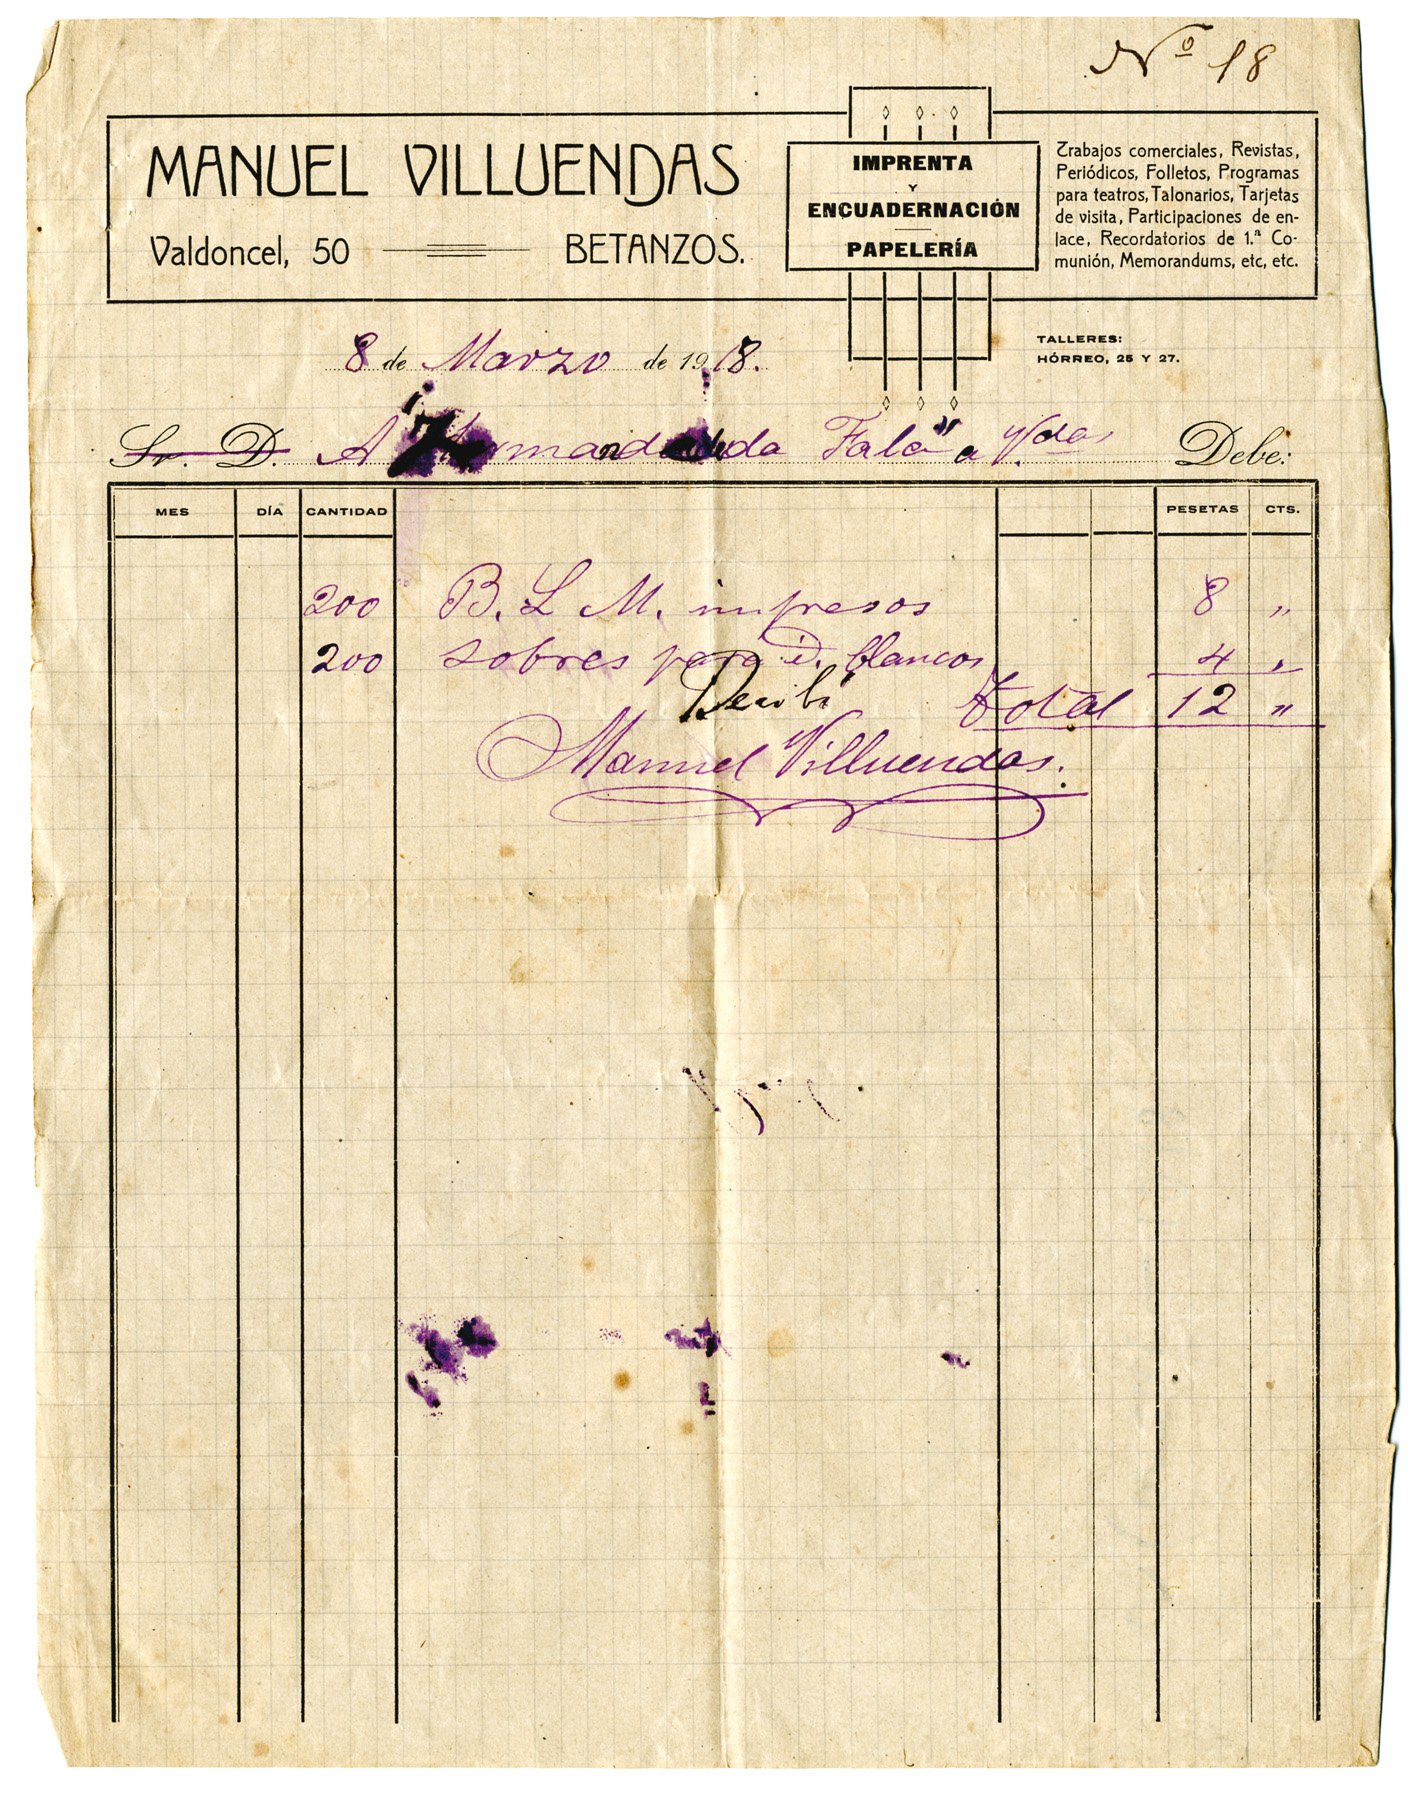 Nº 18
MANUEL VILLUENDAS
Valdoncel, 50 BETANZOS.
IMPRENTA
Y
ENCUADERNACIÓN
PAPELERÍA
Trabajos comerciales, Revistas,
Periódicos, Folletos, Programas
para teatros, Talonarios, Tarjetas
de visita, Participaciones de en-
lace, Recordatorios de 1.ª Co-
munión, Memorandums, etc, etc.
TALLERES:
HÓRREO, 25 Y 27.
8 de Marzo de 1918.
Sr. D. A Irmandade da Fala" a Debe:
MES DÍA CANTIDAD PESETAS CTS.
200 B. L M. impresos 8 "
200 sobres para id. blancos 4 "
Recibí total 12 "
Manuel Villuendas.